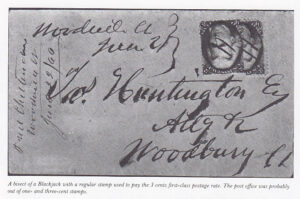 Woodville Ct
June 2
Jas Huntington Esq
Atty &
Woodbury Ct
A bisect of a Blackjack with a regular stamp used to pay the 3 cents first-class postage rate. The post office was probably
out of one- and three-cent stamps.